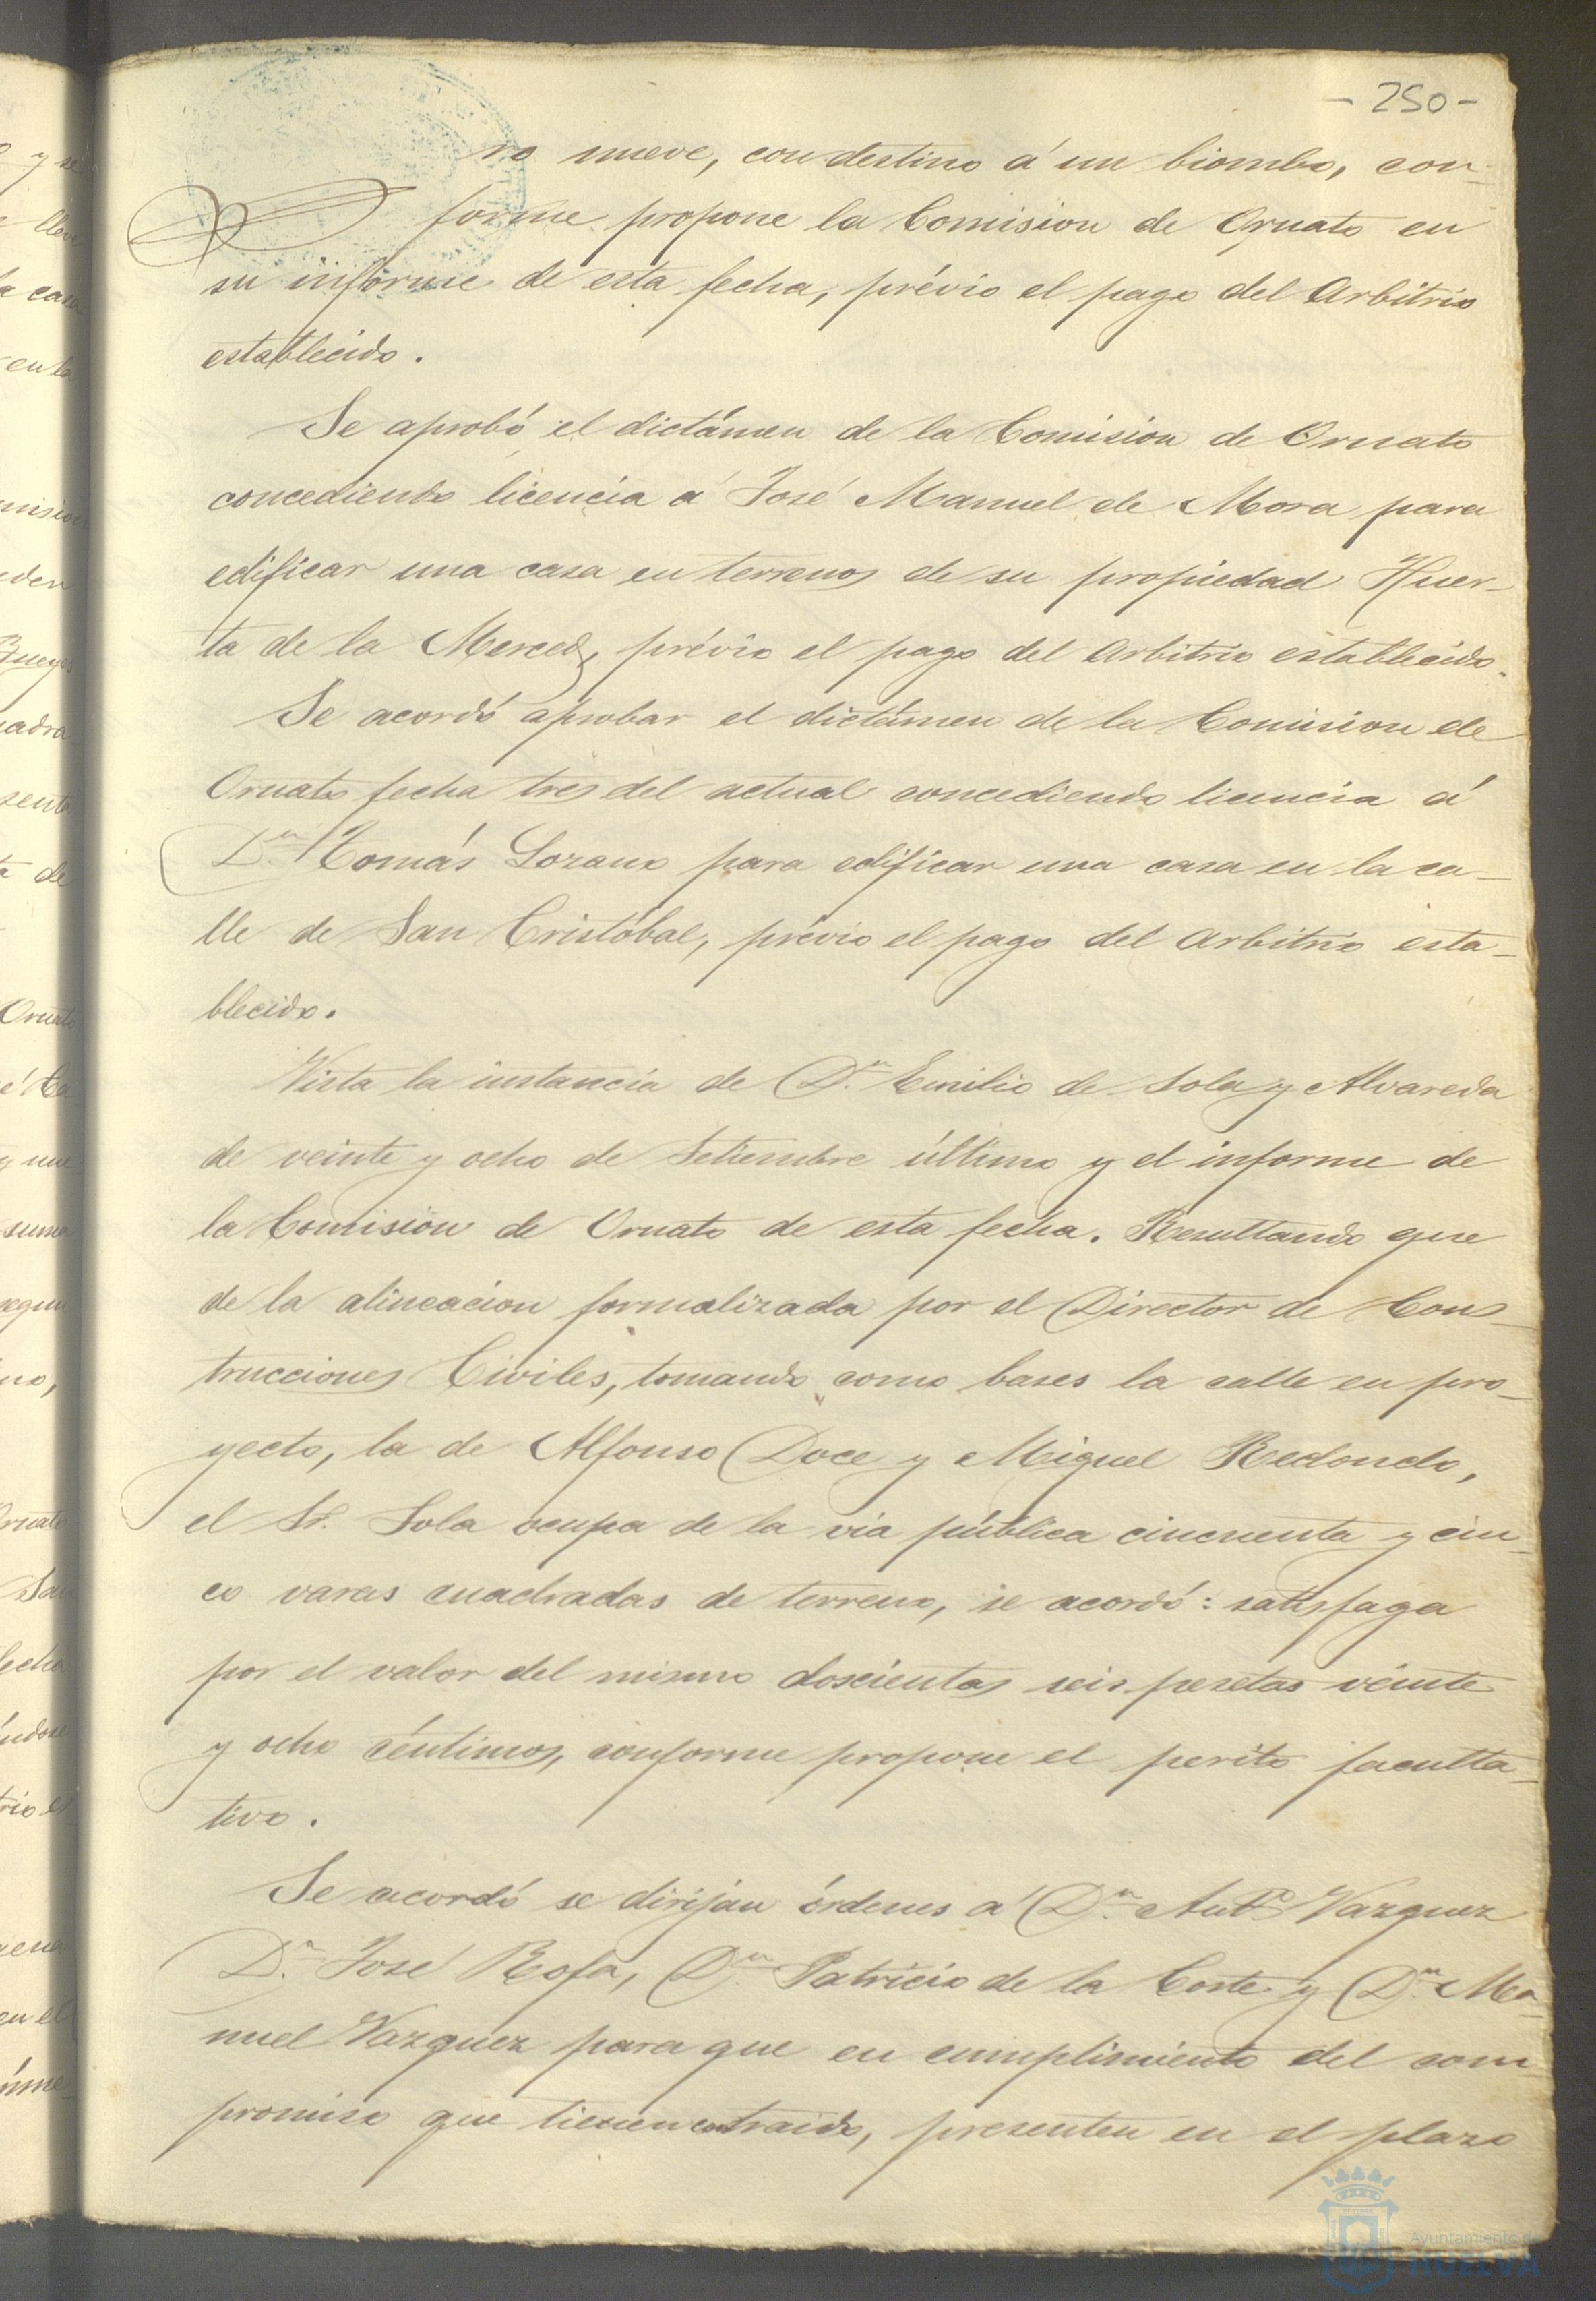 - 250 -
no nueve, con destino á un biombo, con-
forme propone la Comision de Ornato en
su informe de esta fecha, prévio el pago del Arbitrio
establecido.
Se aprobó el dictámen de la Comision de Ornato
concediendo licencia á José Manuel de Mora para
edificar una casa en terrenos de su propiedad Huer-
ta de la Merced, prévio el pago del Arbitrio establecido.
Se acordó aprobar el dictámen de la Comision de
Ornato fecha tres del actual concediendo licencia á
D.n Tomás Lozano para edificar una casa en la ca-
lle de San Cristóbal, prévio el pago del Arbitrio esta-
blecido.
Vista la instancia de D.n Emilio de Sola y Alvareda
de veinte y ocho de Setiembre último y el informe de
la Comision de Ornato de esta fecha. Resultando que
de la alineacion formalizada por el Director de Cons-
trucciones Civiles, tomando como bases la calle en pro-
yecto, la de Alfonso Doce y Miguel Redondo,
el Sr. Sola ocupa de la via pública cincuenta y cin-
co varas cuadradas de terreno, se acordó: satisfaga
por el valor del mismo doscientas seis pesetas veinte
y ocho céntimos, conforme propone el perito faculta-
tivo.
Se acordó se dirijan órdenes á D.n Ant.o Vazquez
D.n José Rofa, D.n Patricio de la Corte y D.n Ma-
nuel Vazquez para que en cumplimiento del com-
promiso que tienen contraido, presenten en el plazo
Ayuntamiento de
HUELVA